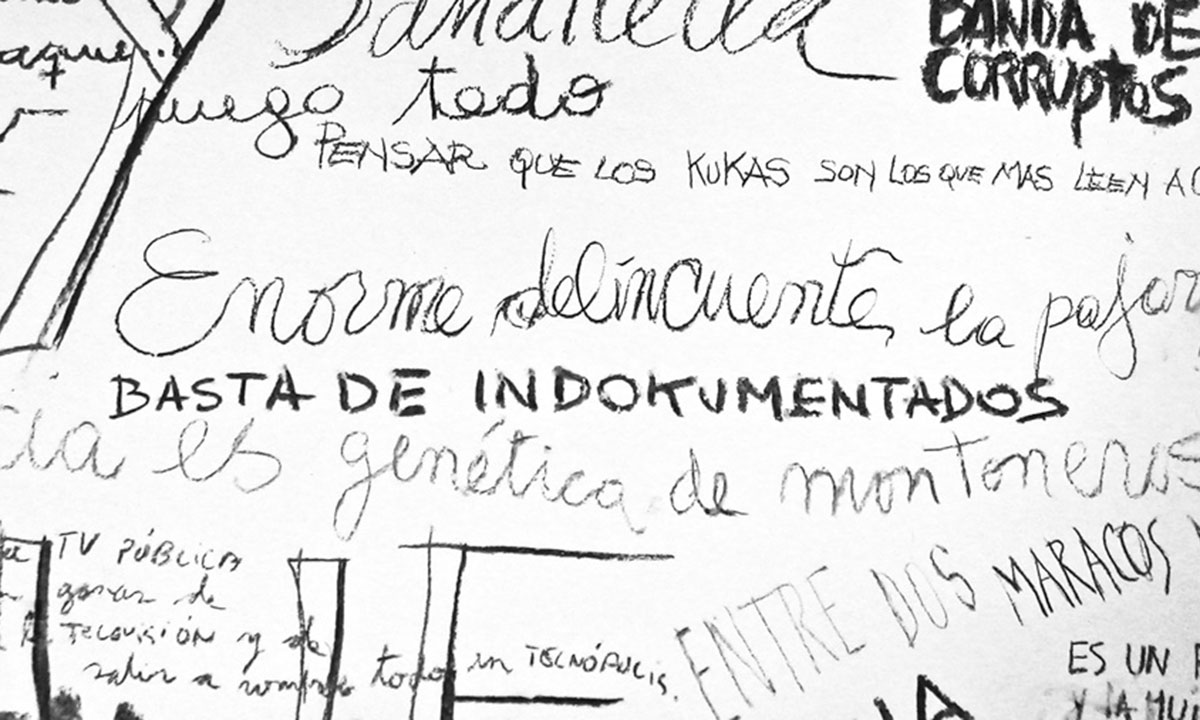 BANDA DE
CORRUPTOS
fuego todo
PENSAR QUE LOS KUKAS SON LOS QUE MAS LEEN
Enorme delincuente, la
BASTA DE INDOKUMENTADOS
es genética de montoneros
TV PÚBLICA
de
TELEVISIÓN y de
salir a romper todo en TECNÓPOLIS.
ENTRE DOS MARACOS
ES UN
Y LA